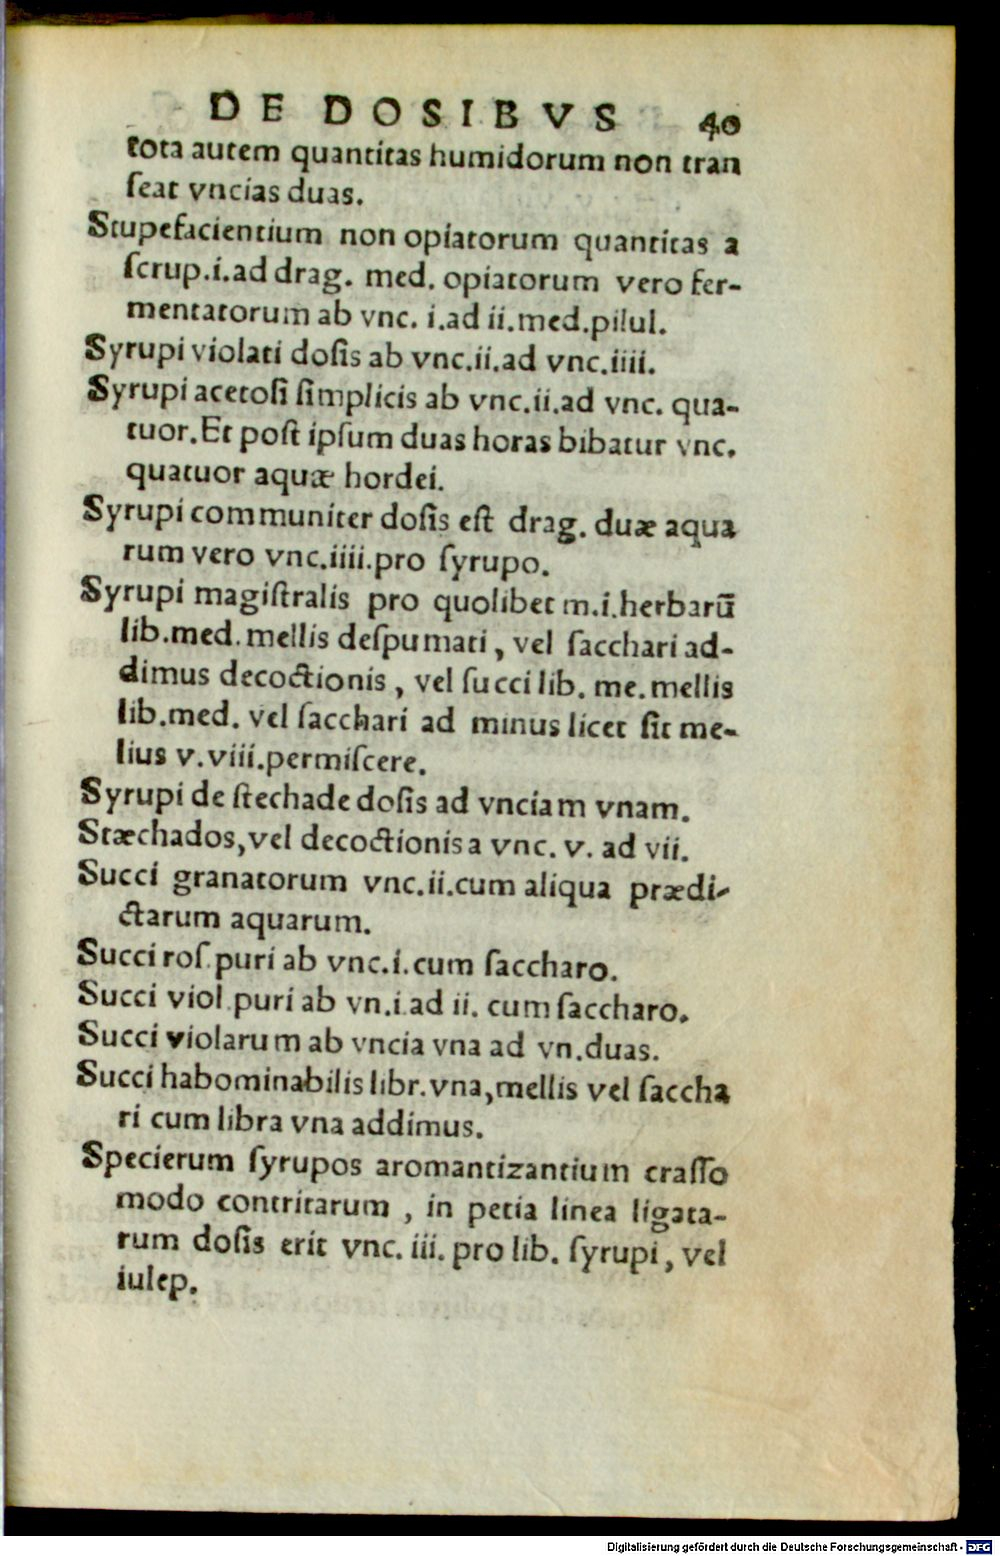 DE DOSIBVS 40
tota autem quantitas humidorum non tran
ſeat vncias duas.
Stupefacientium non opiatorum quantitas a
ſcrup.i.ad drag. med. opiatorum vero fer-
mentatorum ab vnc. i.ad ii.med.pilul.
Syrupi violati doſis ab vnc.ii.ad vnc.iiii.
Syrupi acetoſi ſimplicis ab vnc.ii.ad vnc. qua-
tuor.Et poſt ipſum duas horas bibatur vnc.
quatuor aquæ hordei.
Syrupi communiter doſis eſt drag. duæ aqua
rum vero vnc.iiii.pro ſyrupo.
Syrupi magiſtralis pro quolibet m.i.herbarū
lib.med.mellis deſpumati, vel ſacchari ad-
dimus decoctionis, vel ſucci lib. me.mellis
lib.med. vel ſacchari ad minus licet ſit me-
lius v.viii.permiſcere.
Syrupi de ſtechade doſis ad vnciam vnam.
Stæchados,vel decoctionis a vnc. v. ad vii.
Succi granatorum vnc.ii.cum aliqua prædi-
ctarum aquarum.
Succi roſ.puri ab vnc.i.cum ſaccharo.
Succi viol.puri ab vn.i.ad ii. cum ſaccharo.
Succi violarum ab vncia vna ad vn.duas.
Succi habominabilis libr.vna,mellis vel ſaccha
ri cum libra vna addimus.
Specierum ſyrupos aromantizantium craſſo
modo contritarum , in petia linea ligata-
rum doſis erit vnc. iii. pro lib. ſyrupi, vel
iulep.
Digitalisierung gefördert durch die Deutsche Forschungsgemeinschaft - DFG